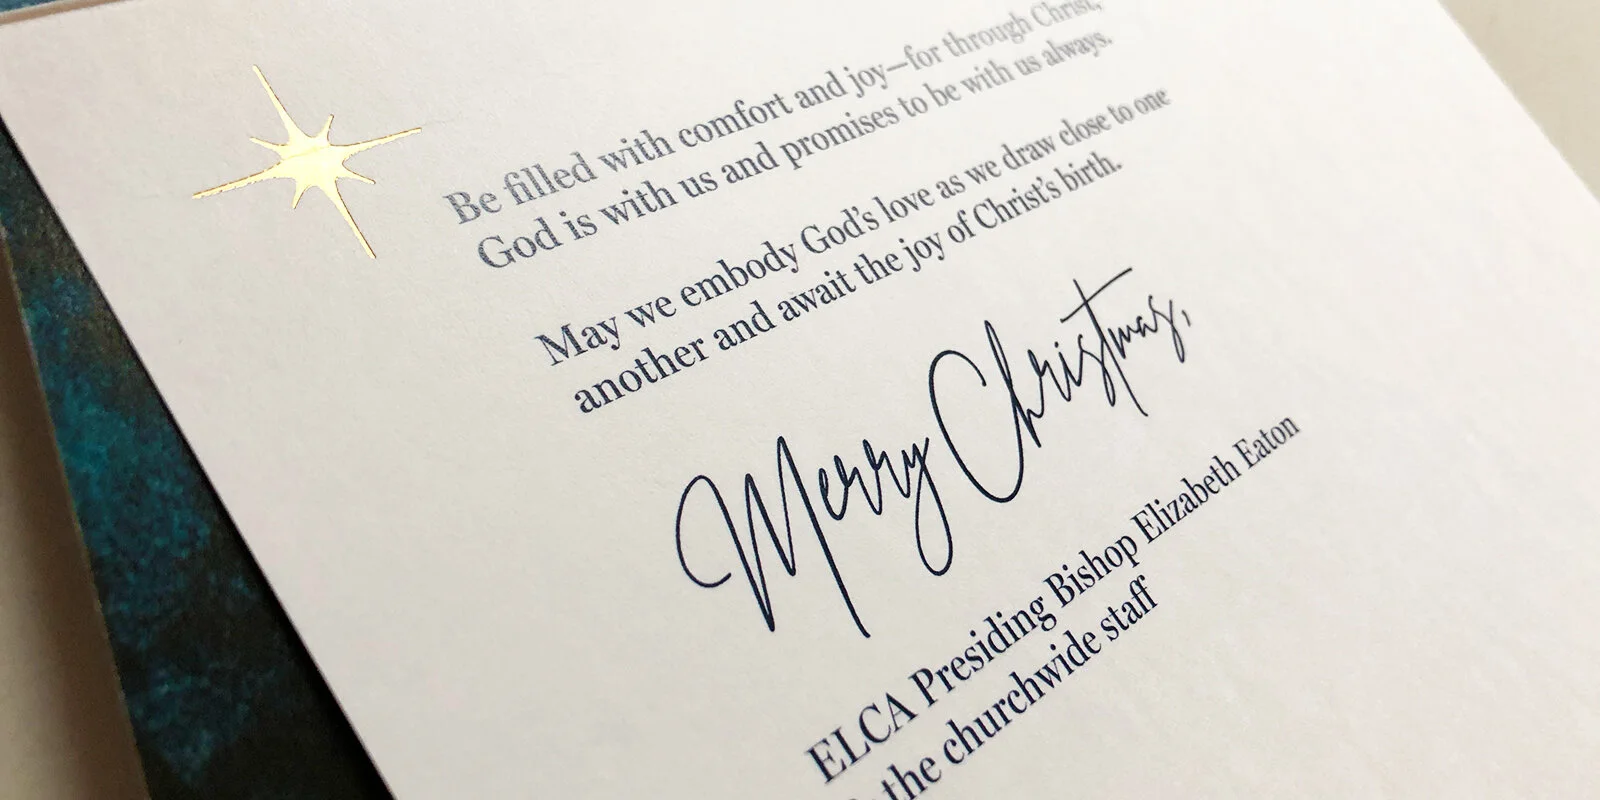 Be filled with comfort and joy—for through Christ,
God is with us and promises to be with us always.
May we embody God's love as we draw close to one
another and await the joy of Christ's birth.
Merry Christmas,
ELCA Presiding Bishop Elizabeth Eaton
the churchwide staff